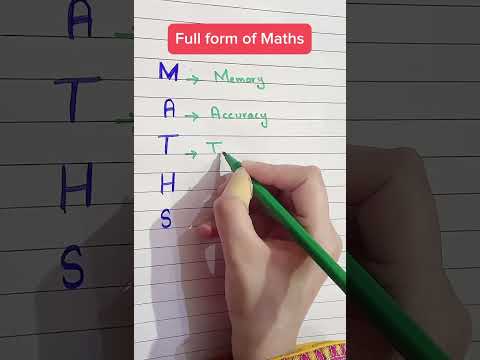 Full form of Maths
M → Memory
A → Accuracy
T → T
H
S
A
T
H
S